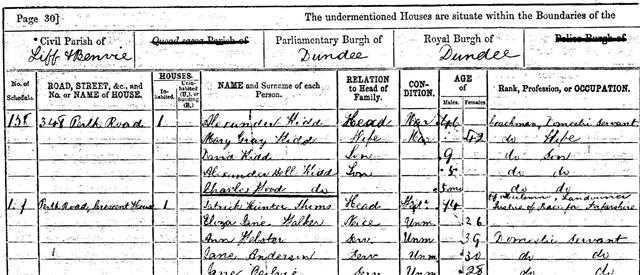 Page 30] The undermentioned Houses are situate within the Boundaries of the
Civil Parish of Quoad sacra Parish of Parliamentary Burgh of Royal Burgh of Police Burgh of
Liff & Benvie Dundee Dundee
No. of Schedule. ROAD, STREET, &c., and No. or NAME of HOUSE. HOUSES. Inhabited. Uninhabited (U.), or Building (B.) NAME and Surname of each Person. RELATION to Head of Family. CONDITION. AGE of Males. Females. Rank, Profession, or OCCUPATION.
348 Perth Road 1 Alexander Kidd Head Mar 46 Coachman, Domestic Servant
Mary Gray Kidd Wife Mar 42 do Wife
David Kidd Son 9 do Son
Alexander Bell Kidd Son 5 do do
Charles Wood do do do
Perth Road, Crescent House 1 Patrick Hunter Thoms Head 74 Landowner
Eliza Jane Walker Neice Unm 26
Ann Webster Serv Unm 39 Domestic Servant
Jane Anderson Serv Unm 30 do do
Jane Serv Unm 28 do do